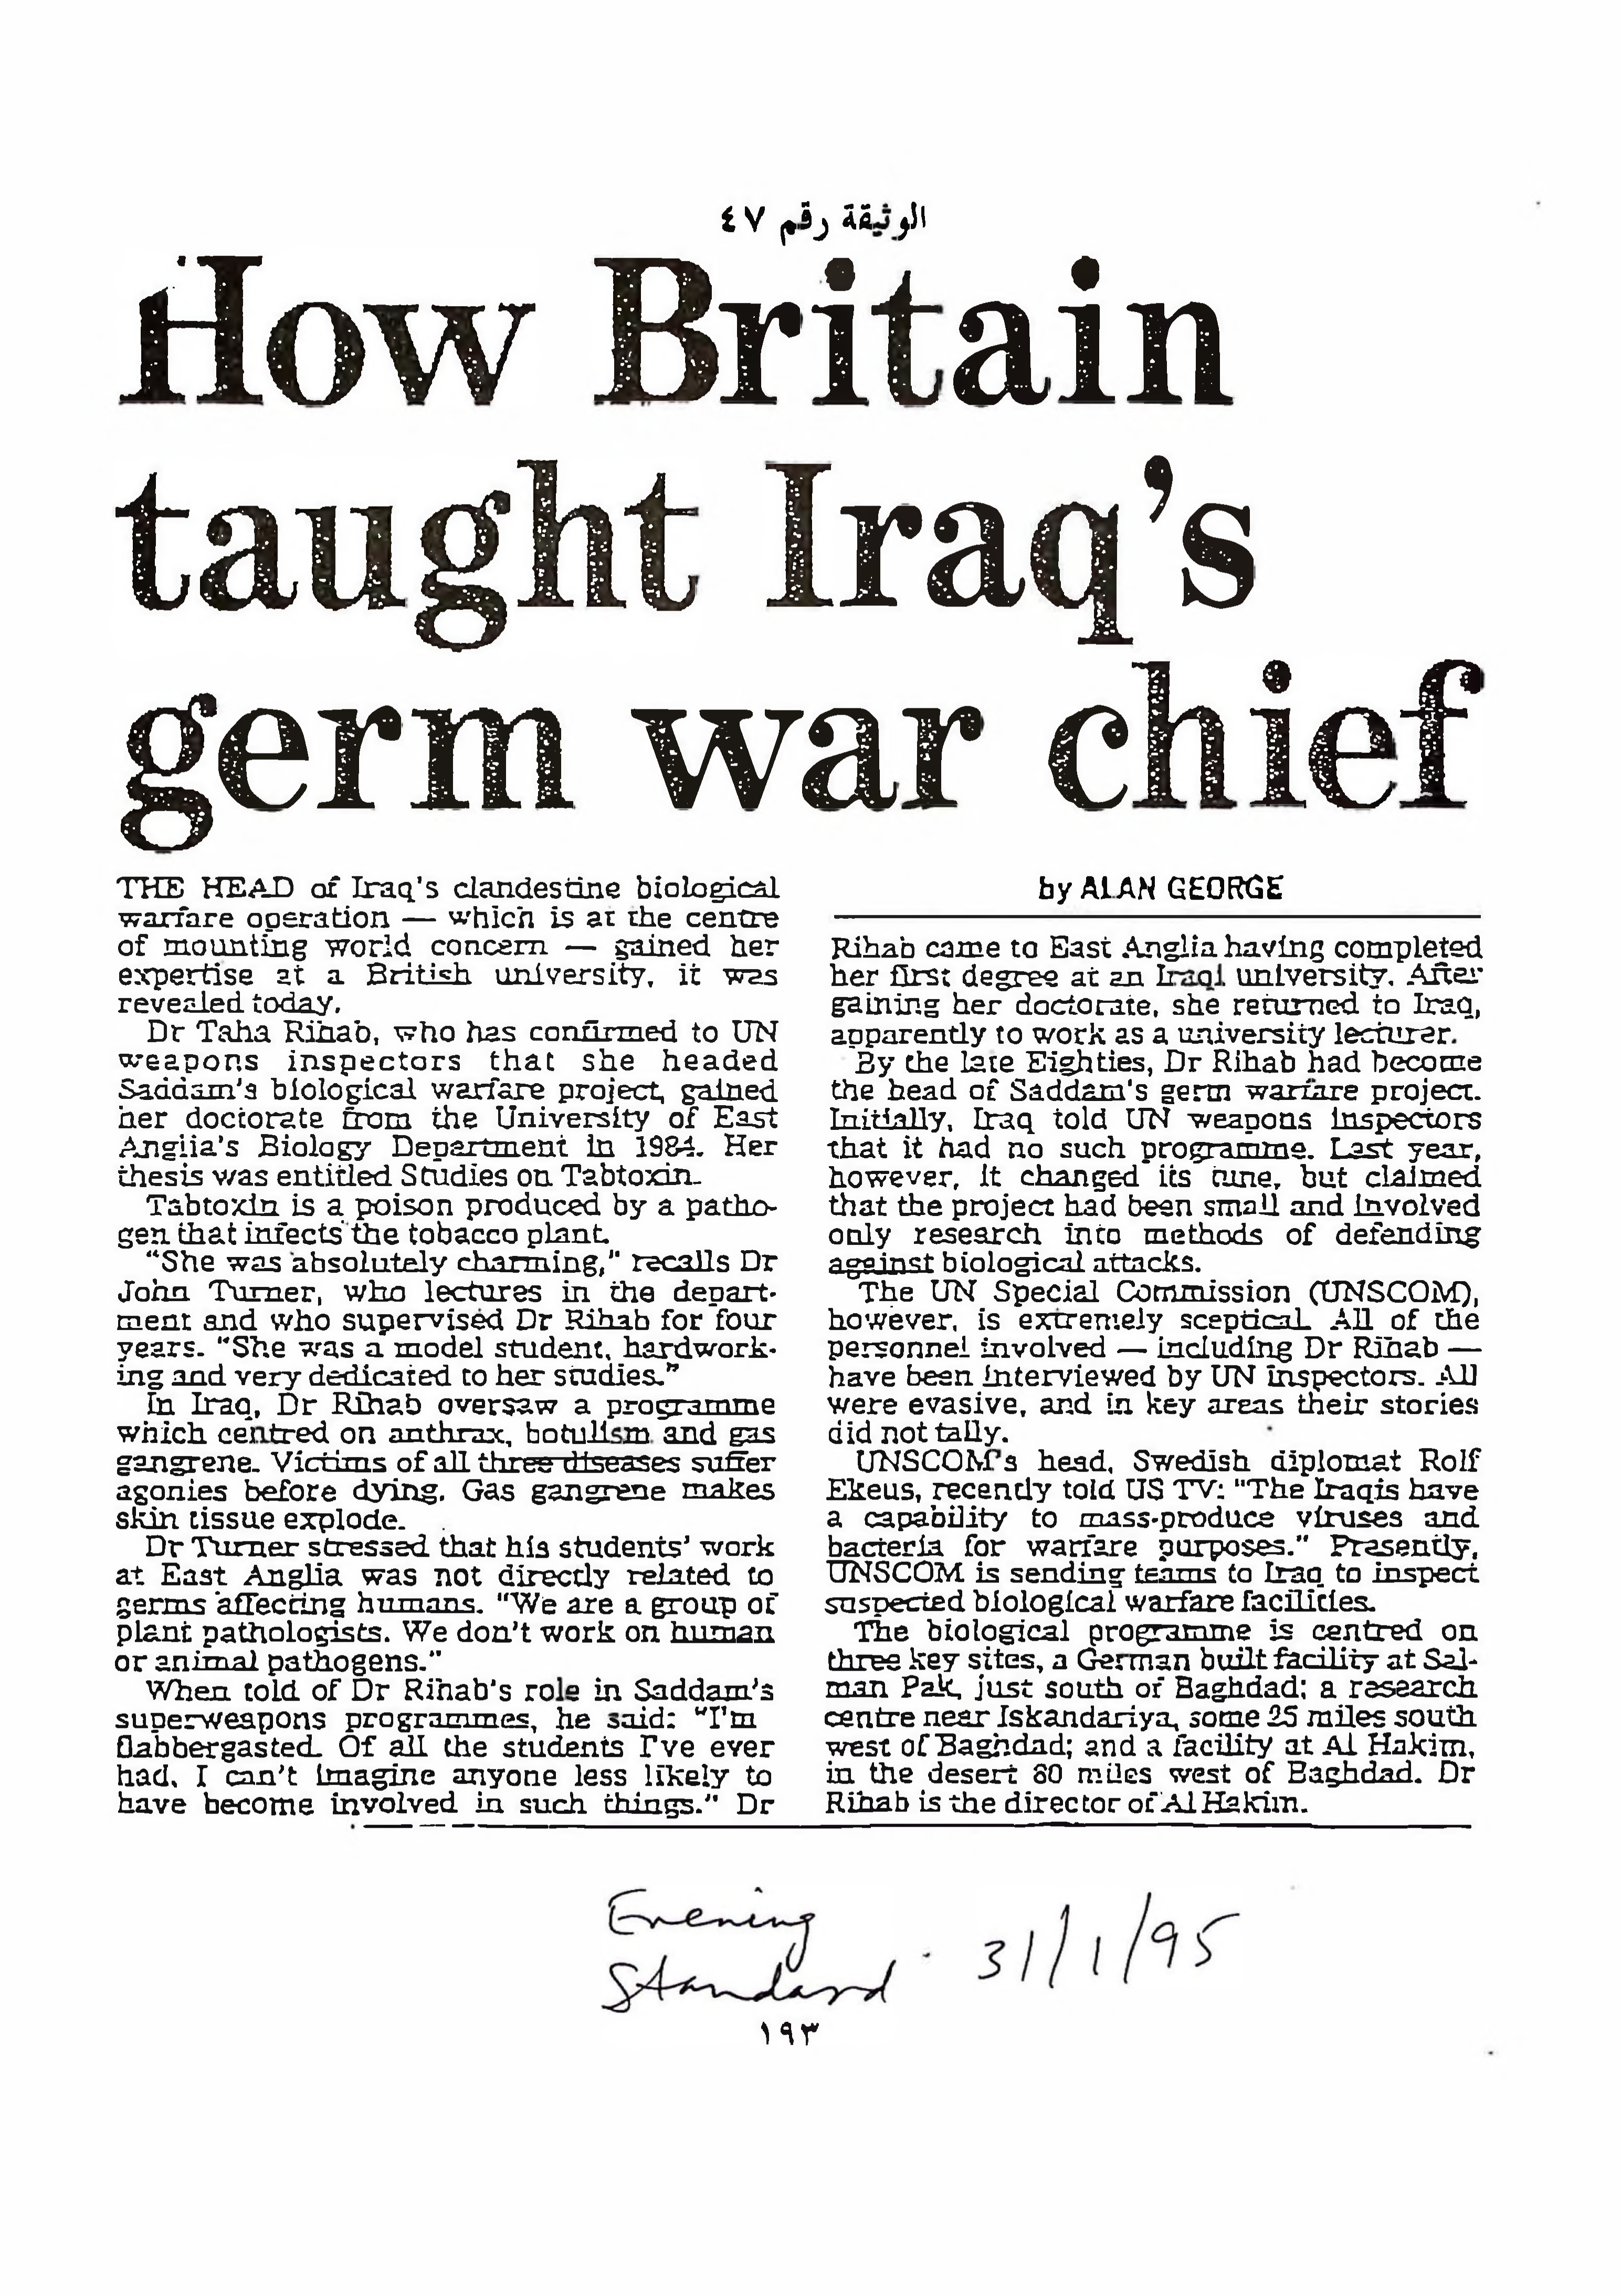 الوثيقة رقم ٤٧
How Britain
taught Iraq's
germ war chief
THE HEAD of Iraq's clandestine biological
warfare operation — which is at the centre
of mounting world concern — gained her
expertise at a British university, it was
revealed today.
Dr Taha Rihab, who has confirmed to UN
weapons inspectors that she headed
Saddam's biological warfare project, gained
her doctorate from the University of East
Anglia's Biology Department in 1984. Her
thesis was entitled Studies on Tabtoxin.
Tabtoxin is a poison produced by a patho-
gen that infects the tobacco plant.
"She was absolutely charming," recalls Dr
John Turner, who lectures in the depart-
ment and who supervised Dr Rihab for four
years. "She was a model student, hardwork-
ing and very dedicated to her studies."
In Iraq, Dr Rihab oversaw a programme
which centred on anthrax, botulism and gas
gangrene. Victims of all three diseases suffer
agonies before dying. Gas gangrene makes
skin tissue explode.
Dr Turner stressed that his students' work
at East Anglia was not directly related to
germs affecting humans. "We are a group of
plant pathologists. We don't work on human
or animal pathogens."
When told of Dr Rihab's role in Saddam's
superweapons programmes, he said: "I'm
flabbergasted. Of all the students I've ever
had, I can't imagine anyone less likely to
have become involved in such things." Dr
by ALAN GEORGE
Rihab came to East Anglia having completed
her first degree at an Iraqi university. After
gaining her doctorate, she returned to Iraq,
apparently to work as a university lecturer.
By the late Eighties, Dr Rihab had become
the head of Saddam's germ warfare project.
Initially, Iraq told UN weapons inspectors
that it had no such programme. Last year,
however, it changed its tune, but claimed
that the project had been small and involved
only research into methods of defending
against biological attacks.
The UN Special Commission (UNSCOM),
however, is extremely sceptical. All of the
personnel involved — including Dr Rihab —
have been interviewed by UN inspectors. All
were evasive, and in key areas their stories
did not tally.
UNSCOM's head, Swedish diplomat Rolf
Ekeus, recently told US TV: "The Iraqis have
a capability to mass-produce viruses and
bacteria for warfare purposes." Presently,
UNSCOM is sending teams to Iraq to inspect
suspected biological warfare facilities.
The biological programme is centred on
three key sites, a German built facility at Sal-
man Pak, just south of Baghdad; a research
centre near Iskandariya, some 25 miles south
west of Baghdad; and a facility at Al Hakim,
in the desert 60 miles west of Baghdad. Dr
Rihab is the director of Al Hakim.
Evening
Standard · 31/1/95
١٩٣